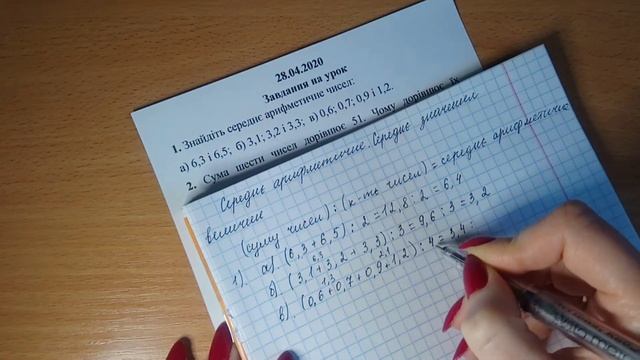 28.04.2020
Завдання на урок
1. Знайдіть середнє арифметичне чисел:
а) 6,3 і 6,5; б) 3,1; 3,2 і 3,3; в) 0,6; 0,7; 0,9 і 1,2.
2. Сума шести чисел дорівнює 51. Чому дорівнює їх
Середнє арифметичне. Середнє значення
величини
(суму чисел) : (к-ть чисел) = середнє арифметичне
1). а). (6,3 + 6,5) : 2 = 12,8 : 2 = 6,4
б). (3,1 + 3,2 + 3,3) : 3 = 9,6 : 3 = 3,2
в). (0,6 + 0,7 + 0,9 + 1,2) : 4 = 3,4 :